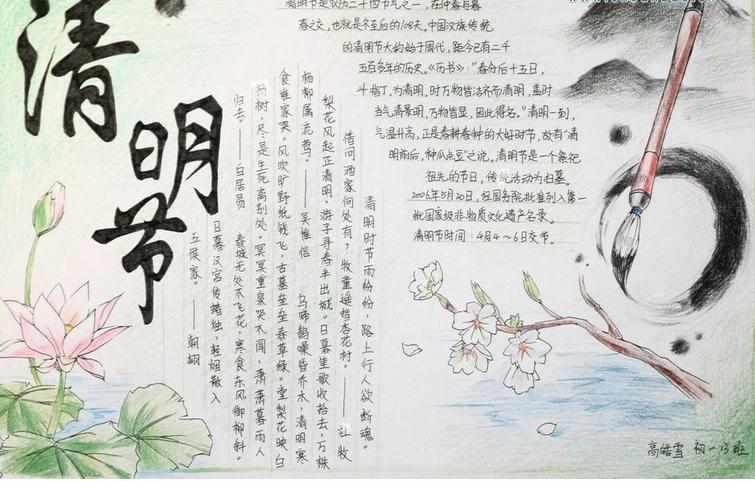 清明节
清明节是农历二十四节气之一，在仲春与暮
春之交，也就是冬至后的108天。中国汉族传统
的清明节大约始于周代，距今已有二千
五百多年的历史。《历书》："春分后十五日，
斗指丁，为清明，时万物皆洁齐而清明，盖时
当气清景明，万物皆显，因此得名。"清明一到，
气温升高，正是春耕春种的大好时节，故有"清
明前后，种瓜点豆"之说。清明节是一个祭祀
祖先的节日，传统活动为扫墓。
2006年5月20日，经国务院批准列入第一
批国家级非物质文化遗产名录。
清明节时间：4月4～6日交节。
清明时节雨纷纷，路上行人欲断魂。
借问酒家何处有，牧童遥指杏花村。——杜牧
梨花风起正清明，游子寻春半出城。日暮笙歌收拾去，万株
杨柳属流莺。——吴惟信 乌啼鹊噪昏乔木，清明寒
食谁家哭。风吹旷野纸钱飞，古墓垒垒春草绿。棠梨花映白
杨树，尽是生死离别处。冥冥重泉哭不闻，萧萧暮雨人
归去。——白居易 春城无处不飞花，寒食东风御柳斜。
日暮汉宫传蜡烛，轻烟散入
五侯家。——
高皓雪 初一13班